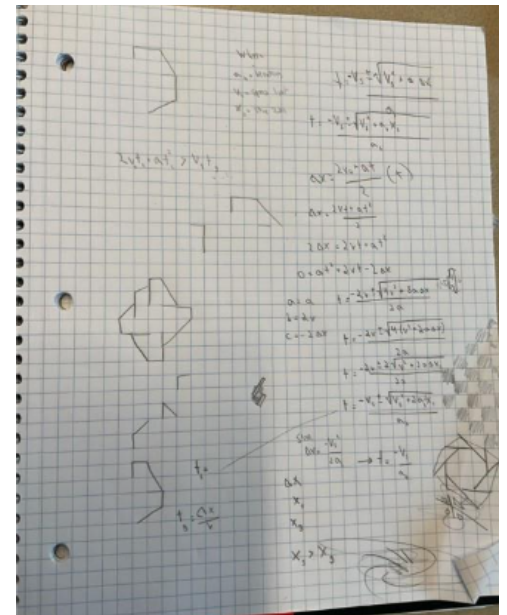 when
t = -V₁ ± √V₁² + a₁ 2x
t = -V₁ ± √V₁² + a₁ x₁ / a₁
2v₁t₁ + at² > V₁t₃
Δx = 2v₁ + at / 2 (t)
Δx = 2vt + at² / 2
2Δx = 2vt + at²
0 = at² + 2vt - 2Δx
a = a
b = 2v
c = -2Δx
t = -2v ± √4v² + 8aΔx / 2a
t = -2v ± √4(v² + 2aΔx) / 2a
t = -2v ± 2√v² + 2aΔx / 2a
t = -V₁ ± √V₁² + 2a₁x₁ / a₁
Δx = -V₁² / 2a₁ → t = -V₁ / a₁
t₁ =
Δx
x₁
t₃ = Δx / v
x₃
x₁ > x₃